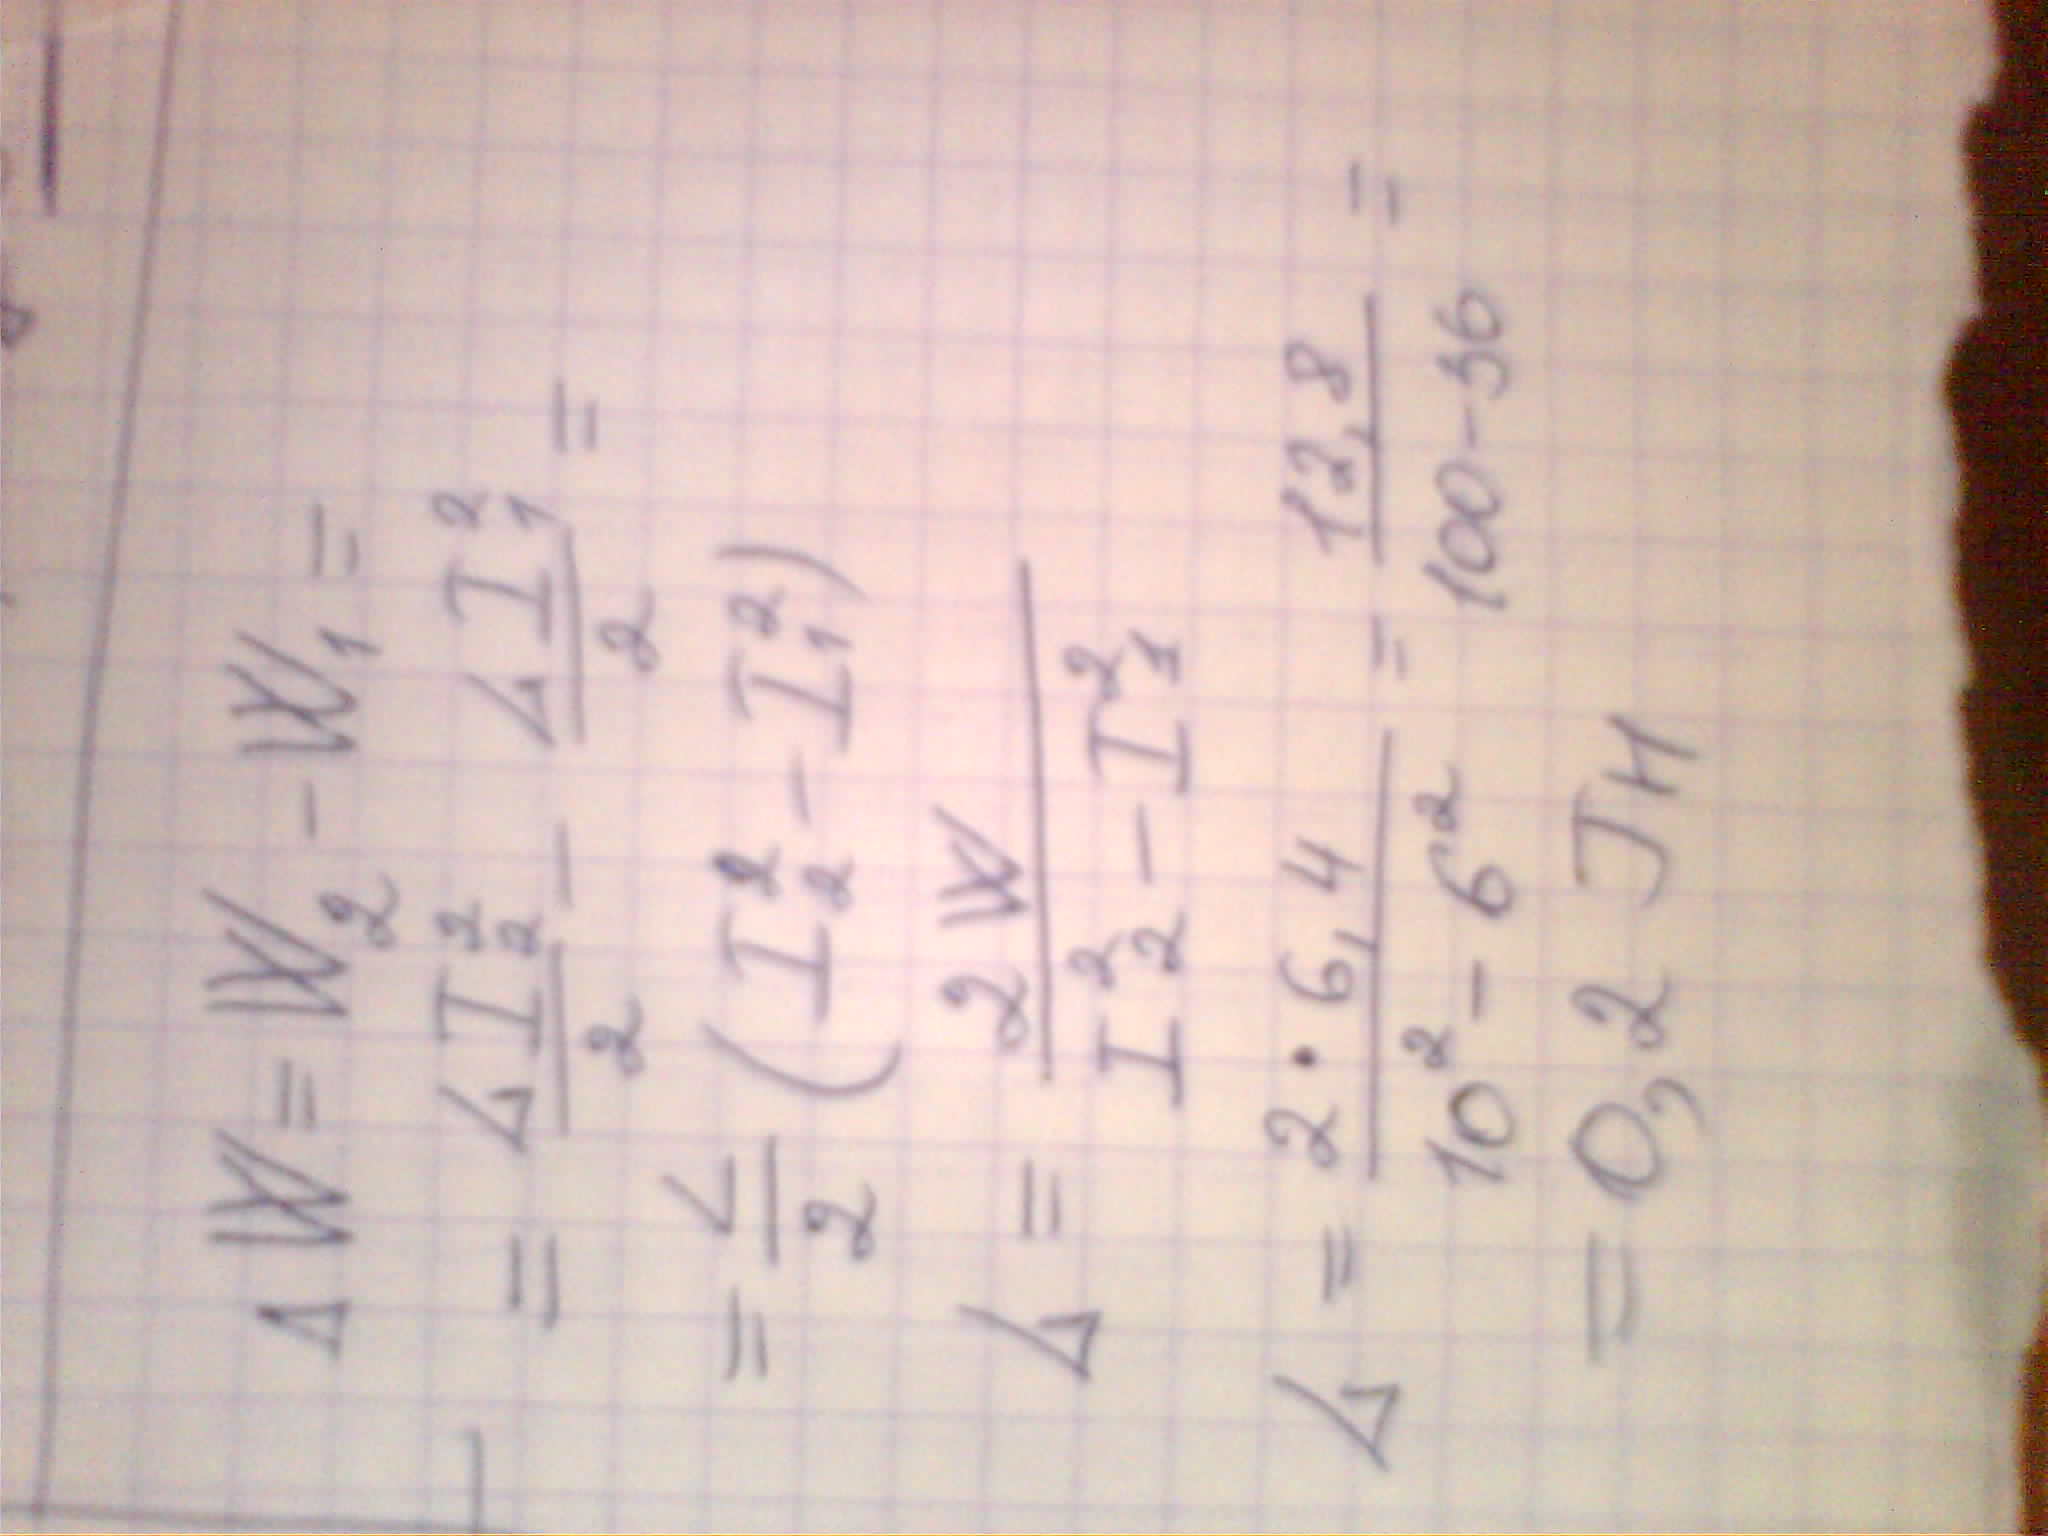 ΔW = W₂ - W₁ =
= LI₂²/2 - LI₁²/2 =
= L/2 (I₂² - I₁²)
L = 2W / I₂² - I₁²
L = 2·6,4 / 10² - 6² = 12,8 / 100-36 =
= 0,2 Гн